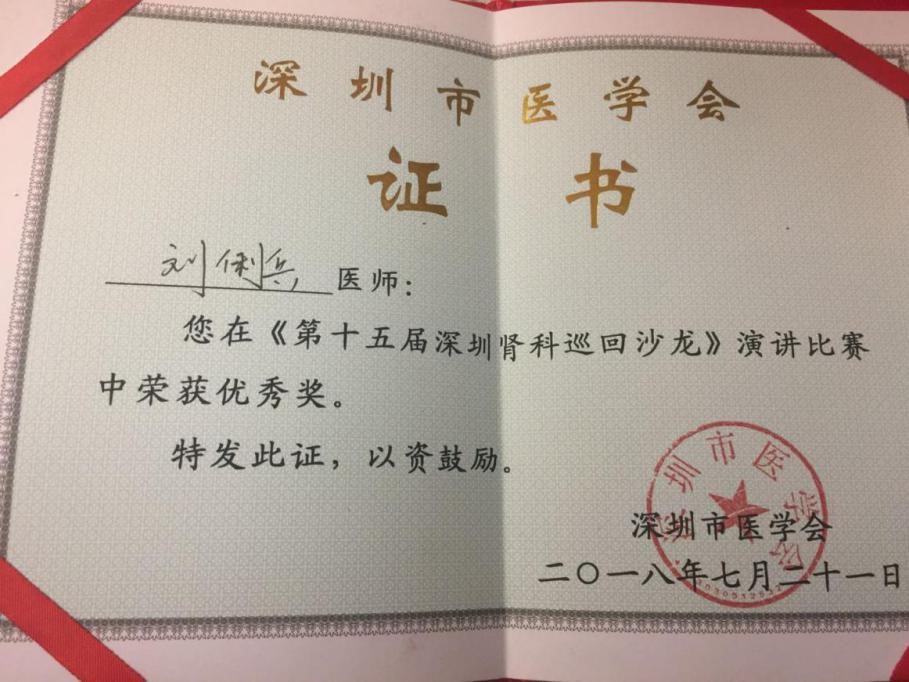 深圳市医学会
证书
刘俐兵 医师：
您在《第十五届深圳肾科巡回沙龙》演讲比赛
中荣获优秀奖。
特发此证，以资鼓励。
深圳市医学会
深圳市医学会
二〇一八年七月二十一日